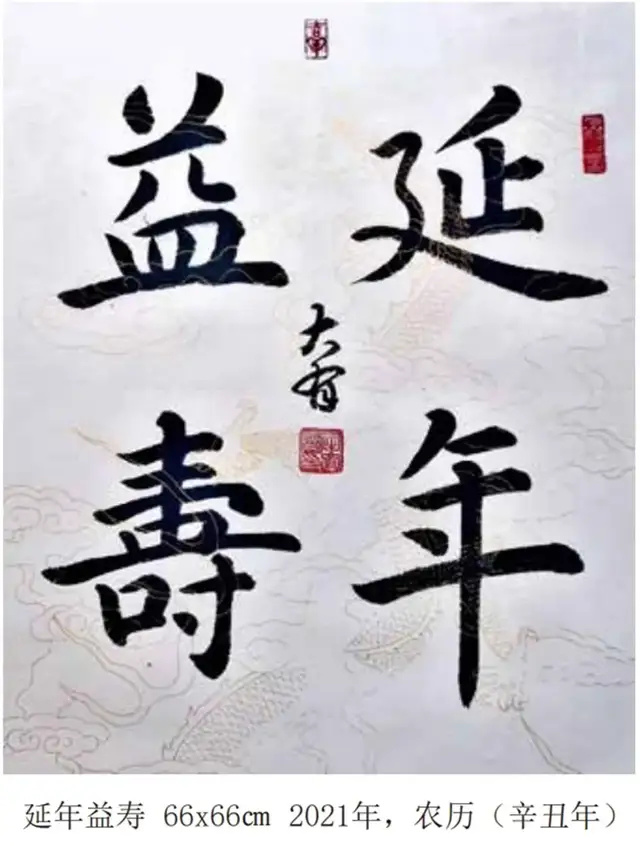 延年
益壽
大有
延年益寿 66x66cm 2021年，农历（辛丑年）